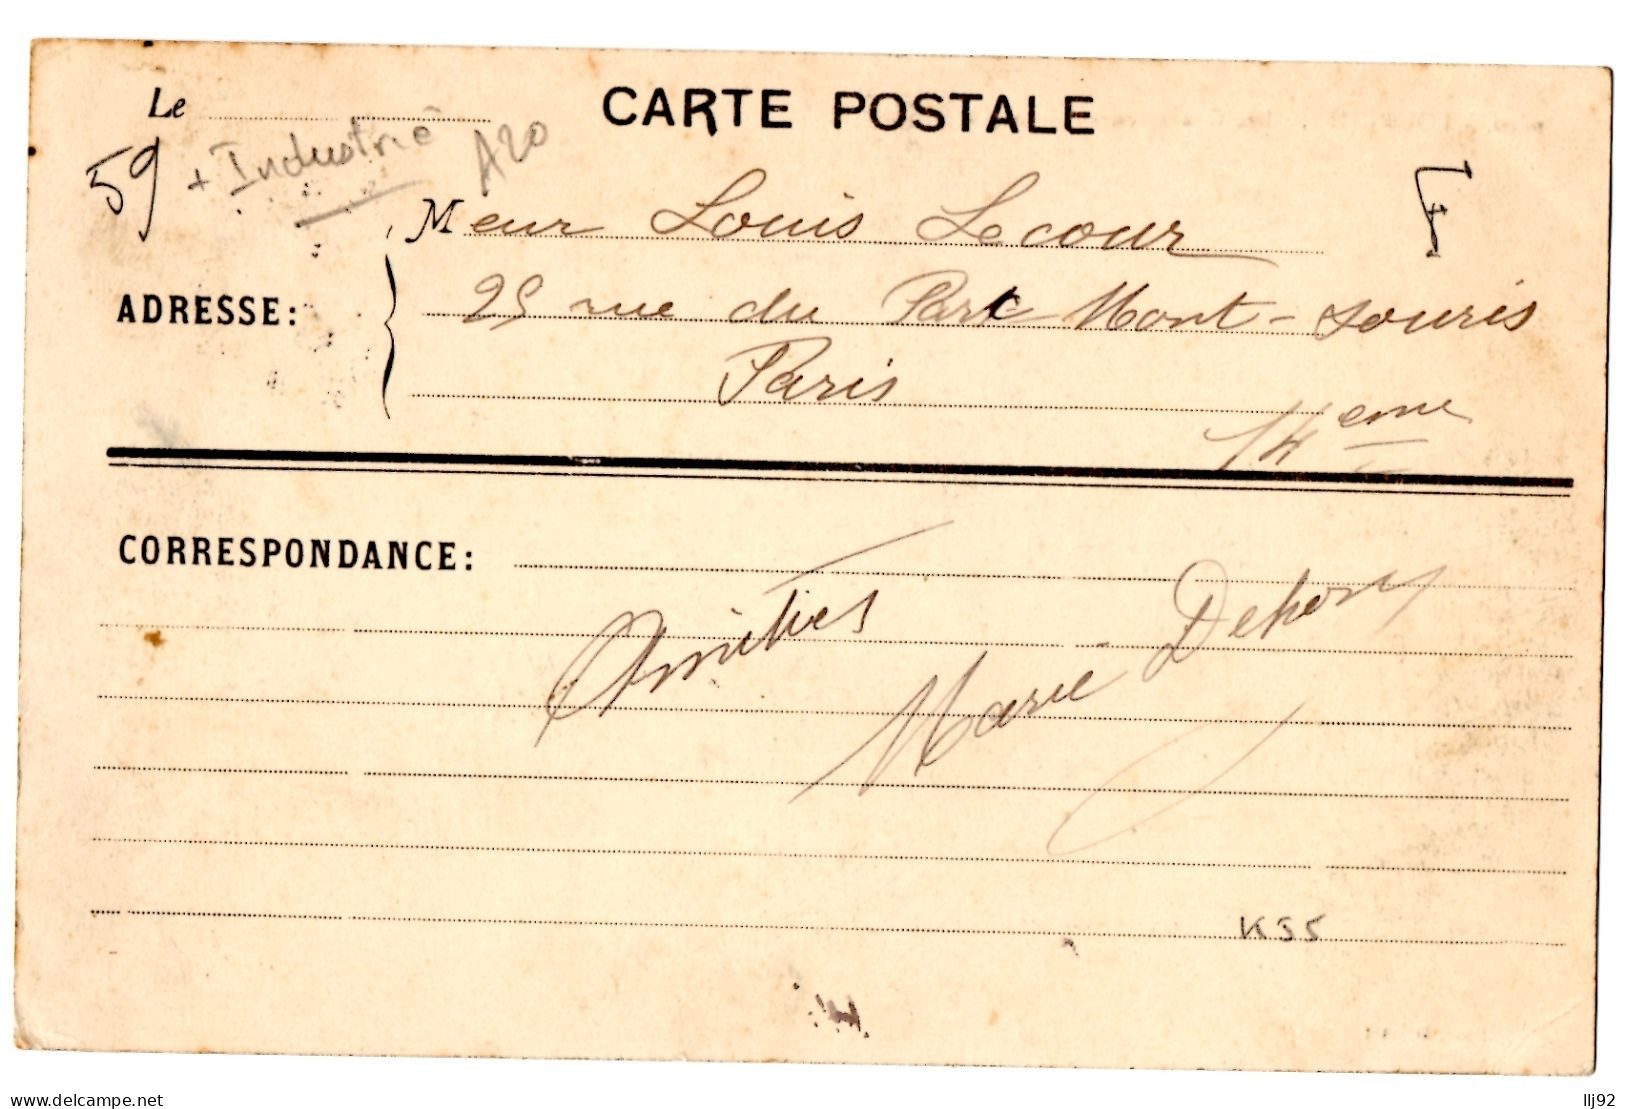 Le
CARTE POSTALE
59 + Industrie A20
Meur Louis Lecour
ADRESSE:
25 rue du Parc Mont-souris
Paris
14 eme
CORRESPONDANCE:
Amitiés
Marie
K55
delcampe.net
llj92